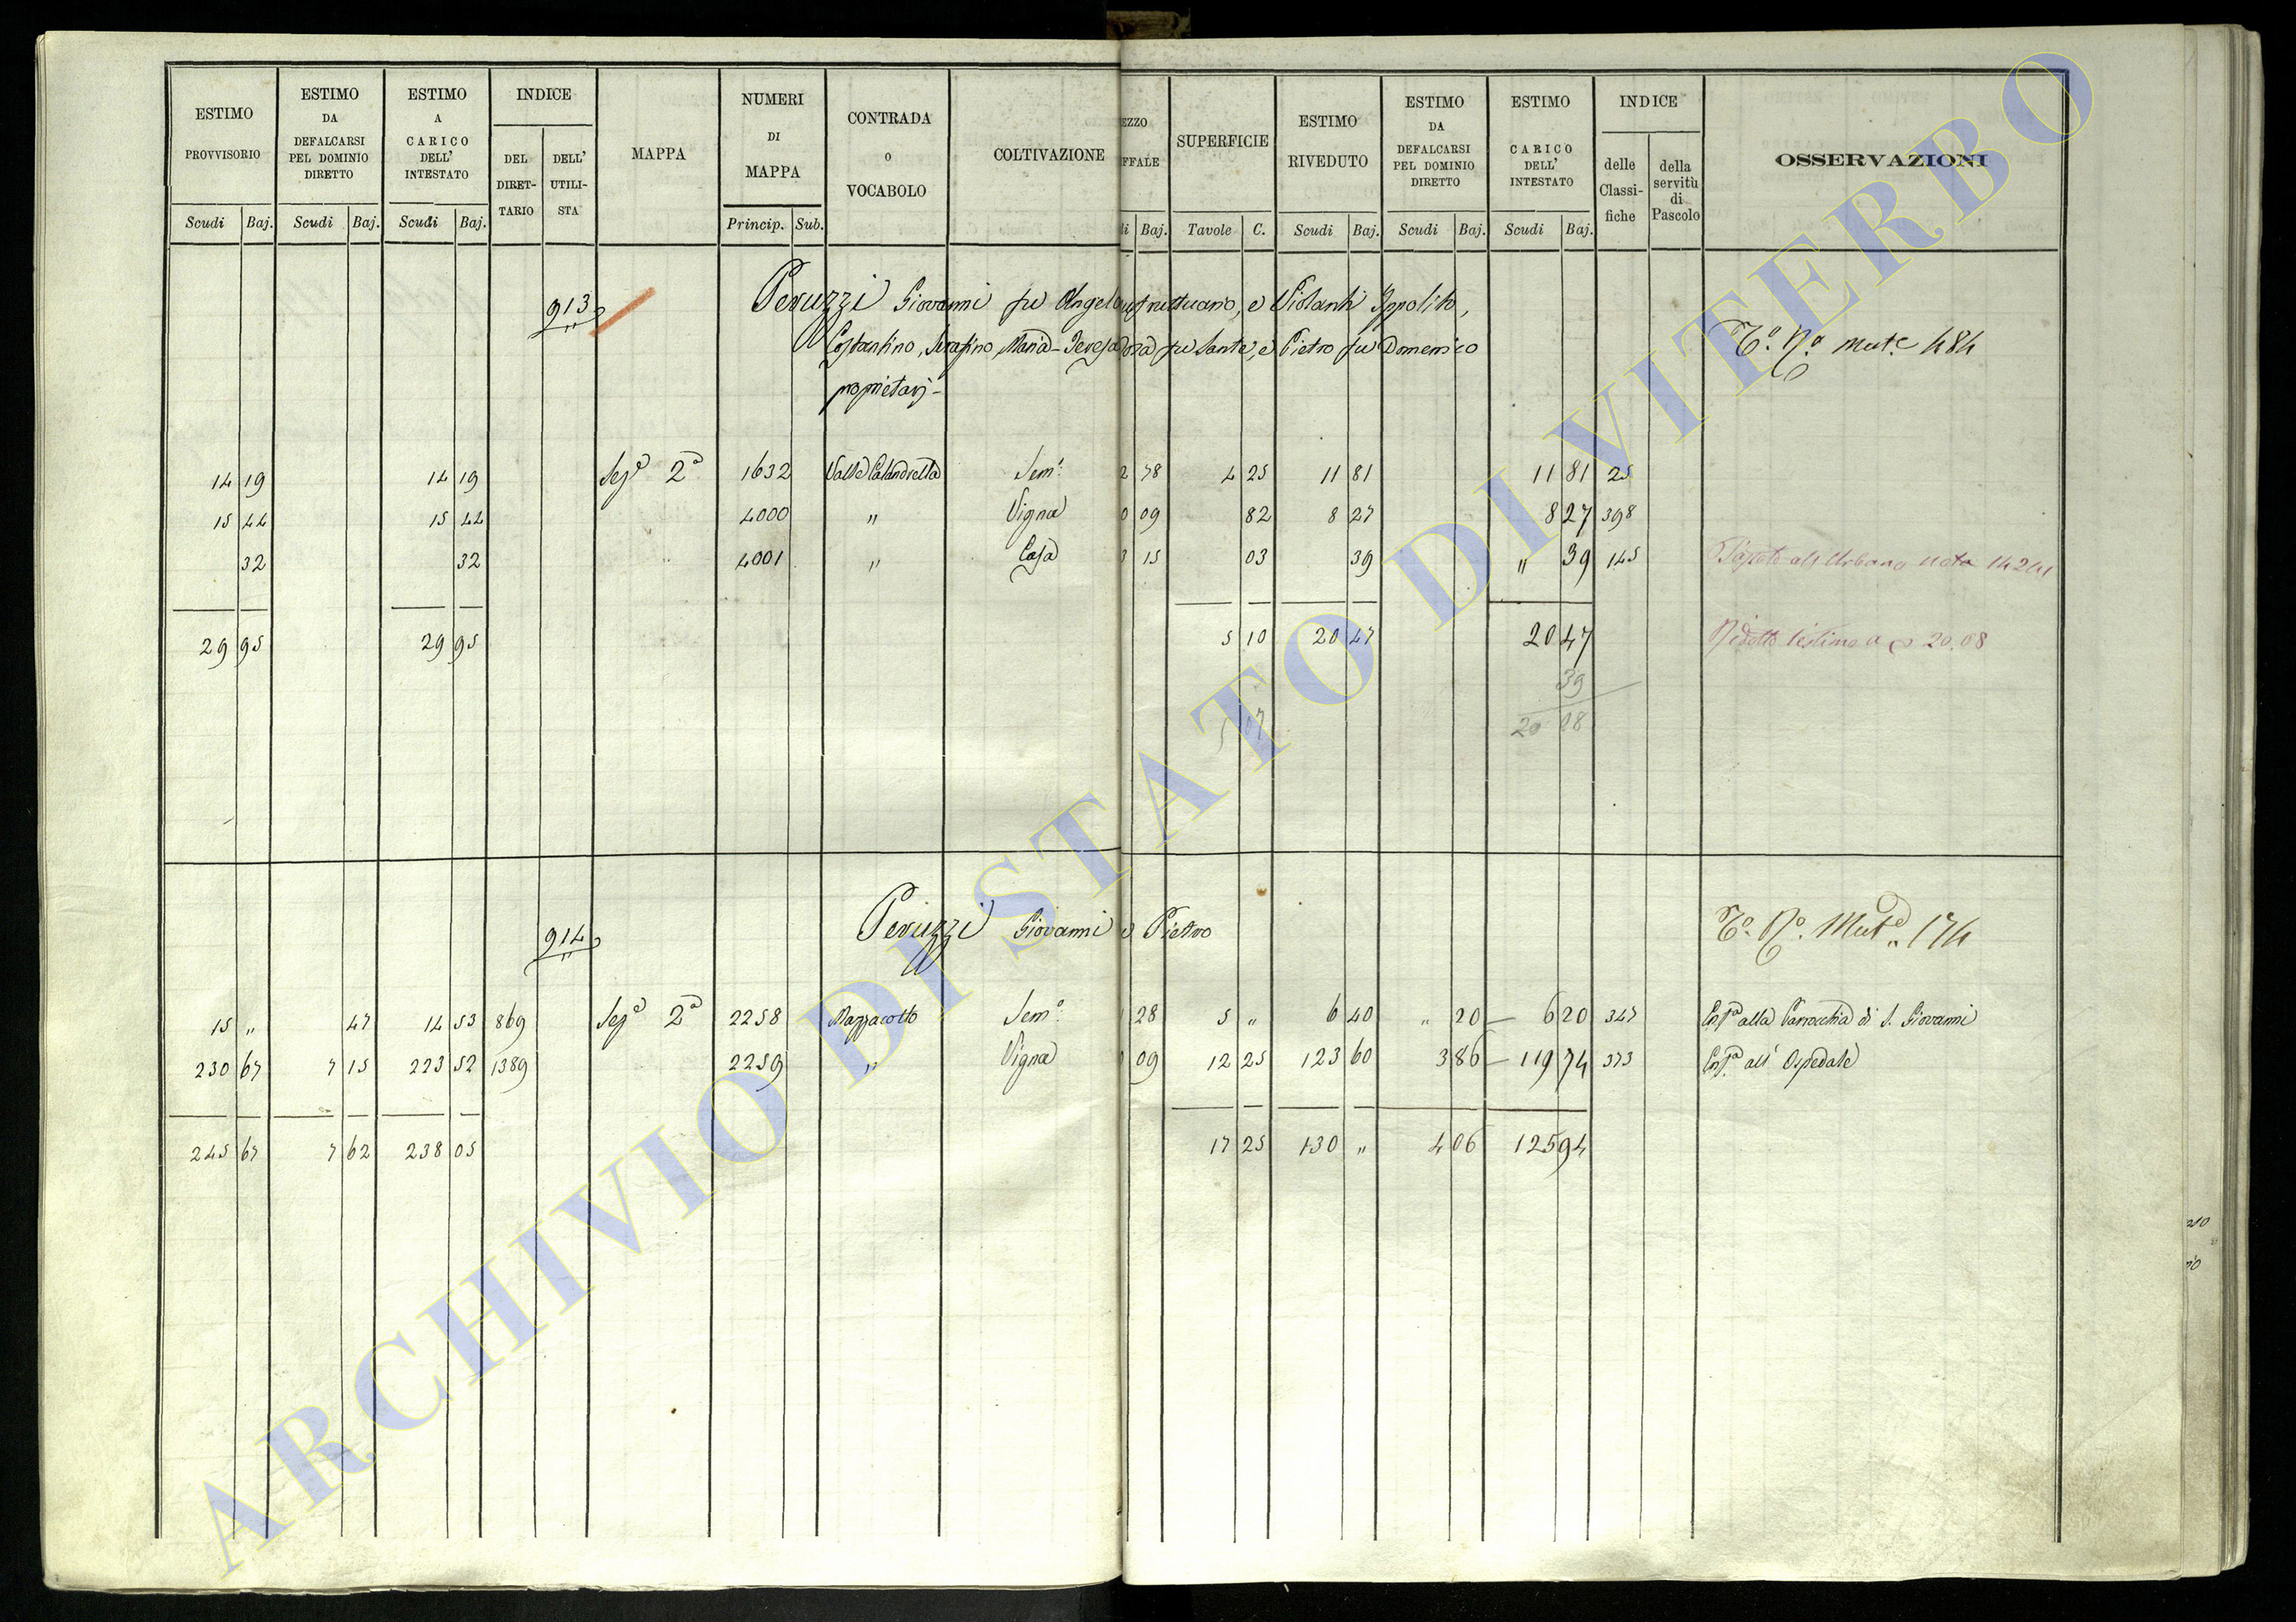 ESTIMO PROVVISORIO Scudi Baj.
ESTIMO DA DEFALCARSI PEL DOMINIO DIRETTO Scudi Baj.
ESTIMO A CARICO DELL' INTESTATO Scudi Baj.
INDICE DEL DIRET-TARIO DELL' UTILI-STA
MAPPA
NUMERI DI MAPPA Princip. Sub.
CONTRADA O VOCABOLO
COLTIVAZIONE
EZZO FFALE di Baj.
SUPERFICIE Tavole C.
ESTIMO RIVEDUTO Scudi Baj.
ESTIMO DA DEFALCARSI PEL DOMINIO DIRETTO Scudi Baj.
ESTIMO A CARICO DELL' INTESTATO Scudi Baj.
INDICE delle Classi-fiche della servitù di Pascolo
OSSERVAZIONI
913 Peruzzi Giovanni fu Angelo usufruttuario, e Violanti Ippolito,
Costantino, Serafino, Maria-Teresa fu Sante, e Pietro fu Domenico
proprietarj-
To. Ra. Mut.e 484
14 19 14 19 Sez.e 2a 1632 Valle Calandrella Sem.o 2 78 4 25 11 81 11 81 25
15 44 15 44 4000 " Vigna 0 09 82 8 27 8 27 398
32 32 4001 " Casa 3 15 03 39 " 39 145 all'Urbano nota 14241
29 95 29 95 5 10 20 47 20 47 Ridotto l'estimo a 20.08
39
07 20 08
914 Peruzzi Giovanni e Pietro To. Ro. Mut.e 174
15 " 47 14 53 869 Sez.e 2a 2258 Mazzacotto Sem.o 28 5 " 6 40 " 20 6 20 347 Enf.a alla Parrocchia di S. Giovanni
230 67 7 15 223 52 1389 2259 " Vigna 09 12 25 123 60 3 86 119 74 373 Enf.a all' Ospedale
245 67 7 62 238 05 17 25 130 " 4 06 125 94
ARCHIVIO DI STATO DI VITERBO